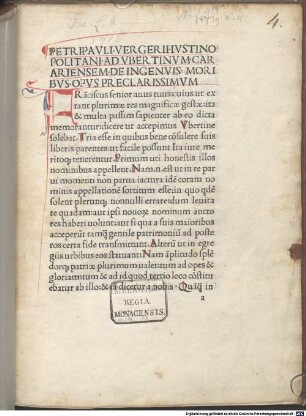 4.
PETRI PAVLI VERGERII IVSTINO
POLITANI AD VBERTINVM CAR
ARIENSEM DE INGENVIS MORI
BVS OPVS PRECLARISSIMVM
FRāciscus senior auus tuus cuius ut ex
tant plurimæ res magnificæ gestæ ita
& multa passim sapienter ab eo dicta
memorantur dicere ut accepimus Vbertine
solebat. Tria esse in quibus bene cōsulere suis
liberis parentes ut facile possunt Ita iure me
ritoq; tenerentur. Primum ut honestis illos
nominibus appellent. Nam n. est ut in re par
ui momenti non parua iactura idecorum no
minis appellationē sortitum esse in quo qdē
solent plerunq; nonnulli errare dum leuita
te quadam aut ipsi nouoꝝ nominum aucto
res haberi uolunt aut si qua a suis maioribus
acceperūt tamq̄ gentile patrimoniū ad poste
ros certa fide transmittunt. Alterū ut in egre
giis urbibus eos statuant. Nam āplitudo splē
dorq; patriæ plurimum ualent cum ad opes &
gloriam tum & ad id quod tertio loco cōstitu
ebatur ab illo & a
a
REGIA
MONACENSIS.